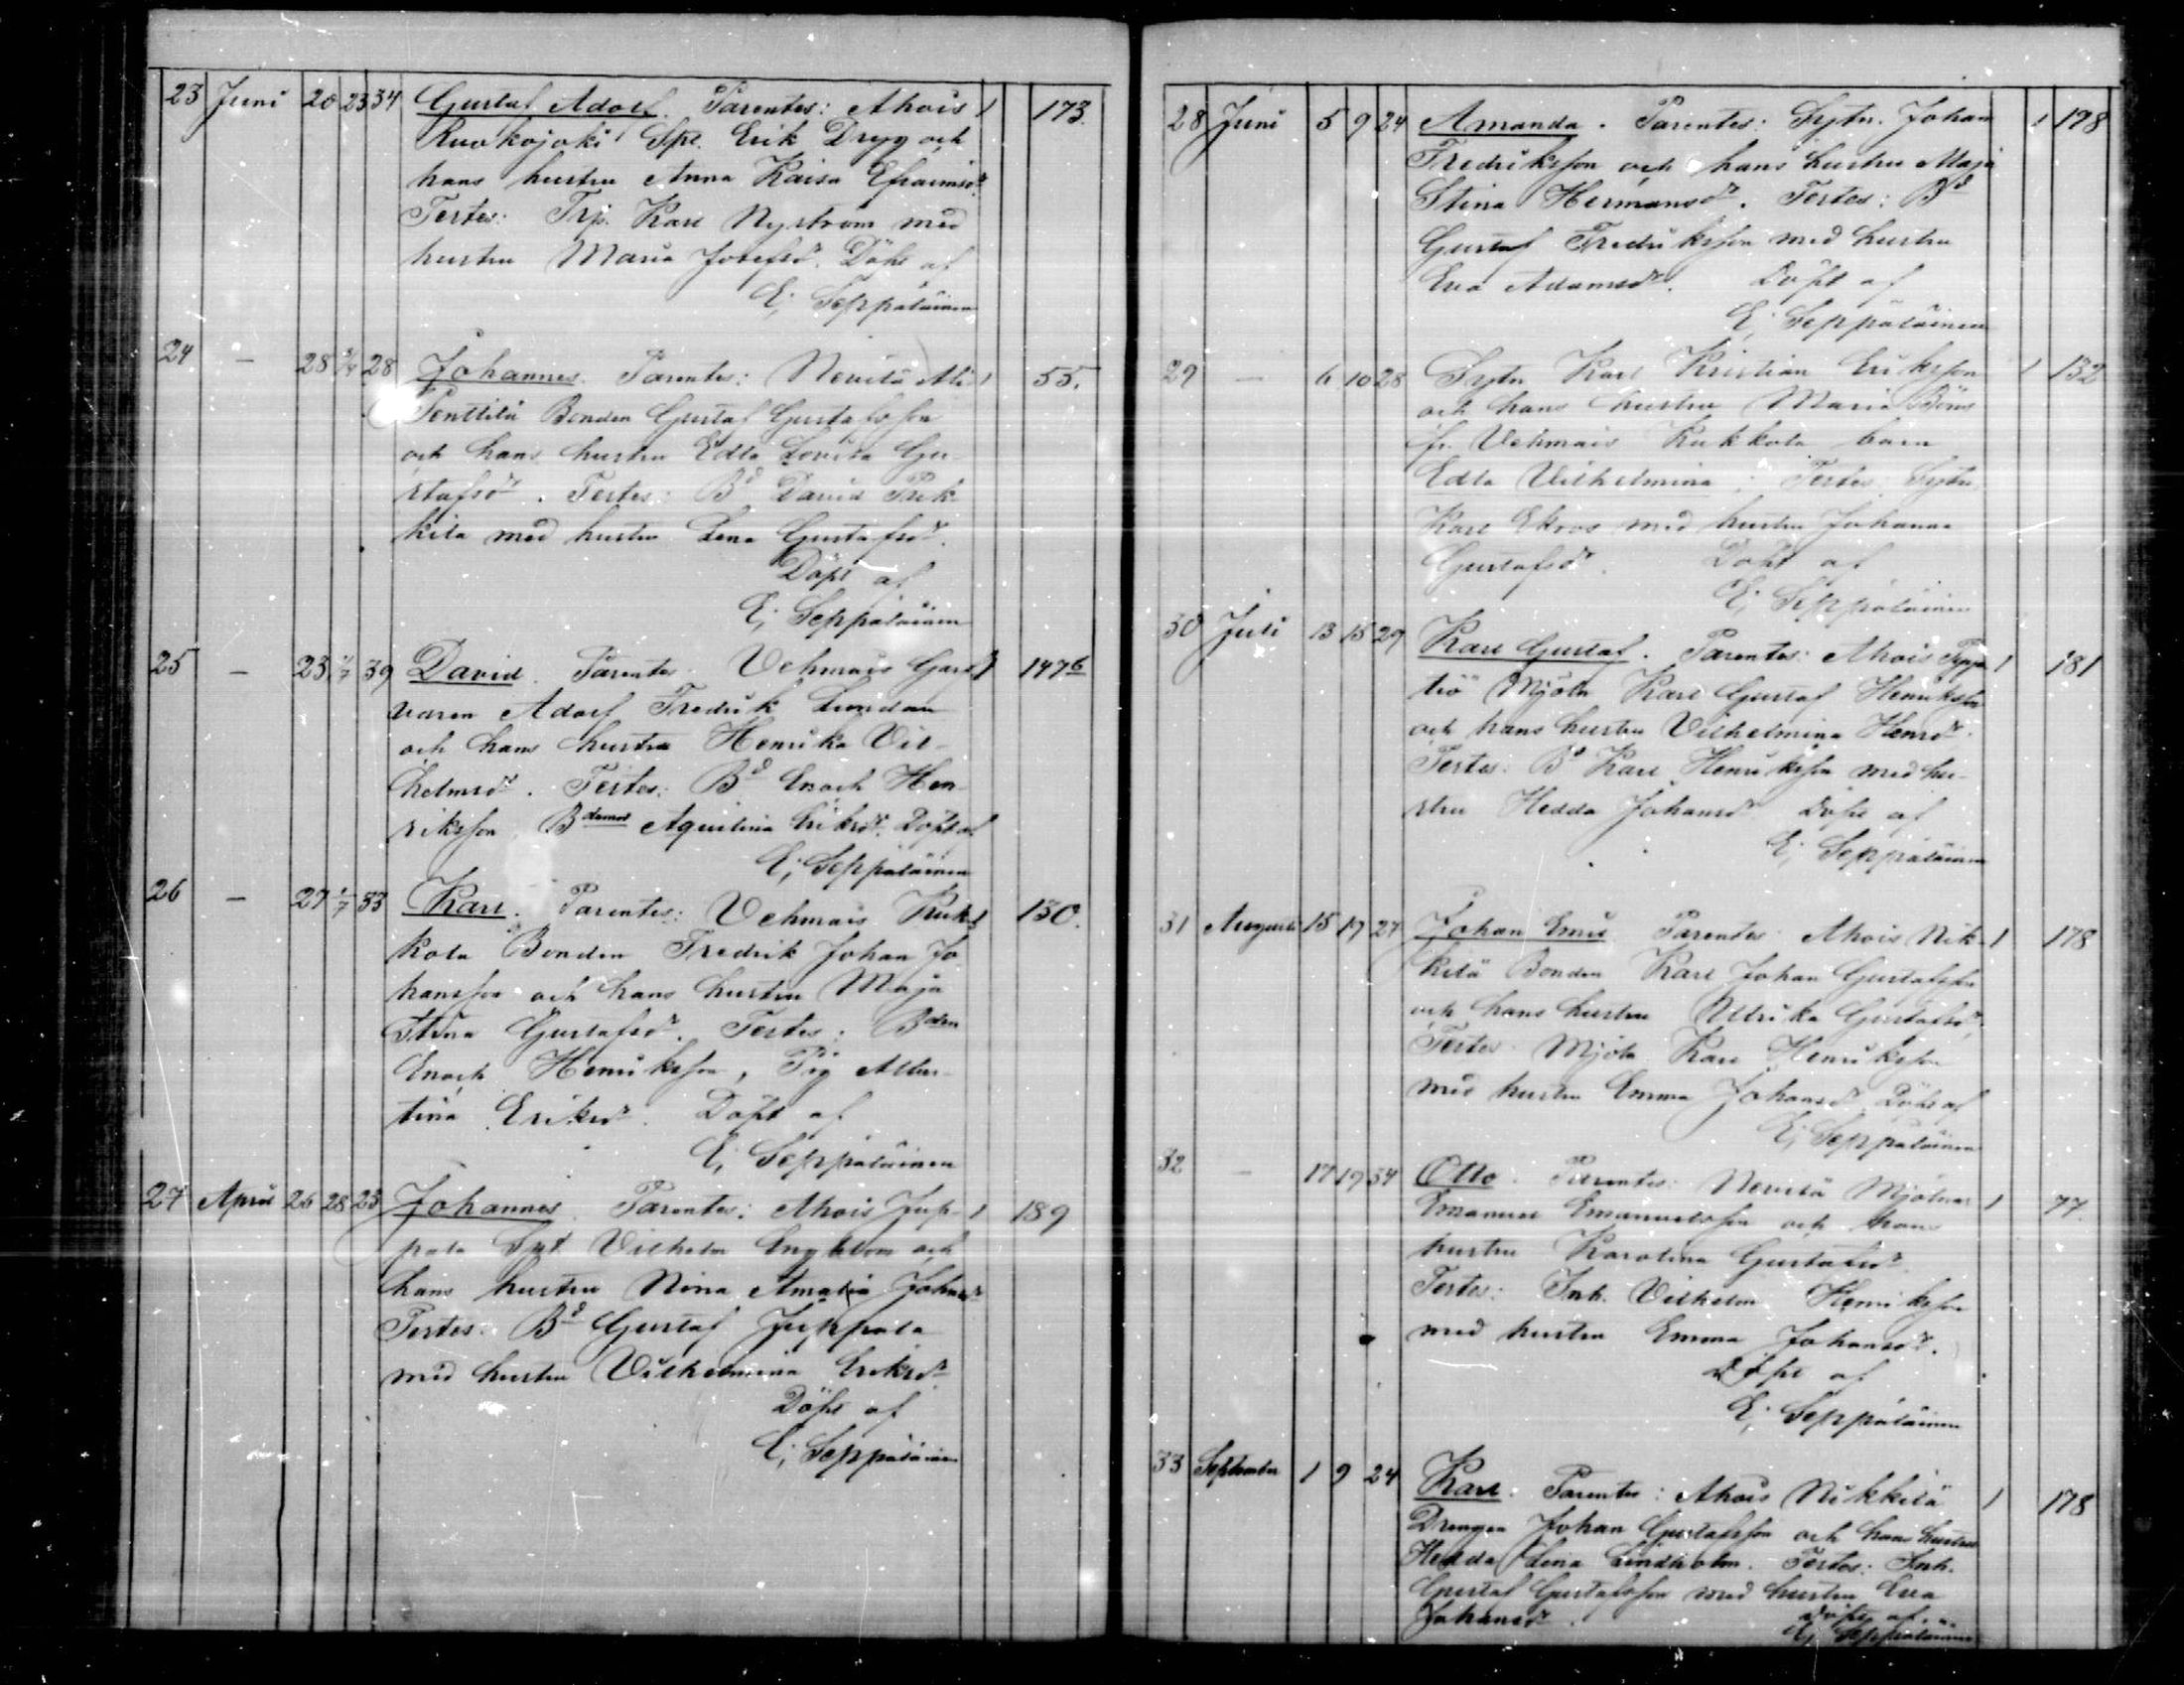 23 Juni 20 23 34 Gustaf Adolf. Parentes: Ahois 1 173.
Ruokojoki Spt. Erik Dryg och
hans hustru Anna Kaisa Efraimsdr
Testes: Trp. Karl Nyström med
hustru Maria Josefsdr. Döpt af
E; Seppäläinen
24 — 28 28 Johannes. Parentes: Nevilä 1 55.
Penttilä Bonden Gustaf Gustafsson
och hans hustru Edla Lovisa Gu-
stafsdr. Testes: Bd David
kilä med hustru Lena Gustafsdr.
Döpt af
E; Seppäläinen
25 — 23 1/7 39 David. Parentes Vehmais 1 147 6
varen Adolf Fredrik Lundan
och hans hustru Henrika Vil-
helmsdr. Testes: Bd Enoch Hen-
riksson Aqvilina Eriksdr. Döpt af
E; Seppäläinen
26 — 27 1/7 33 Karl. Parentes: Vehmais Kuk- 1 130.
kola Bonden Fredrik Johan Jo
hansson och hans hustru Maja
Stina Gustafsdr. Testes: Bden
Enoch Henriksson, Pig Aller-
tina Eriksdr. Döpt af
E; Seppäläinen
27 April 26 28 23 Johannes. Parentes: Ahois Jup- 1 189
pala Spt. Vilhelm Engblom och
hans hustru Nina Amalia Johansdr
Testes: Bd Gustaf Juppala
med hustru Vilhelmina Eriksdr
Döpt af
E; Seppäläinen
28 Juni 5 9 24 Amanda. Parentes: Sytn. Johan 1 198
Fredriksson och hans hustru Maja
Stina Hermansdr. Testes: Bd
Gustaf Fredriksson med hustru
Eva Adamsdr. Döpt af
E; Seppäläinen
29 — 6 10 28 Sytn Karl Kristian Eriksson 1 132
och hans hustru Maria
fr. Vehmais Kukkola barn
Edla Vilhelmina; Testes: Sytn.
Karl Ekroos med hustru Johanna
Gustafsdr. Döpt af
E; Seppäläinen
30 Juli 13 15 29 Karl Gustaf. Parentes: Ahois 1 181
Mjöln Karl Gustaf Henriksson
och hans hustru Vilhelmina Henrdr.
Testes: Bd Karl Henriksson med hu-
stru Hedda Johansdr Döpt af
E; Seppäläinen
31 Augusti 15 17 27 Johan Emil Parentes: Ahois Nik- 1 178
kilä Bonden Karl Johan Gustafsson
och hans hustru Ulrika Gustafsdr.
Testes Mjöln Karl Henriksson
med hustru Emma Johansdr Döpt af
E; Seppäläinen
32 — 17 19 34 Otto. Parentes: Nevilä Mjölnar 1 77.
Emanuel Emanuelsson och hans
hustru Karolina Gustafsdr
Testes: Inh. Vilhelm Henriksson
med hustru Emma Johansdr.
Döpt af
E; Seppäläinen
33 September 1 9 24 Karl. Parentes: Ahois Nikkilä 1 178
Drengen Johan Gustafsson och hans hustru
Hedda Lina Lindholm. Testes: Inh.
Gustaf Gustafsson med hustru Eva
Johansdr. Döpt af
E; Seppäläinen